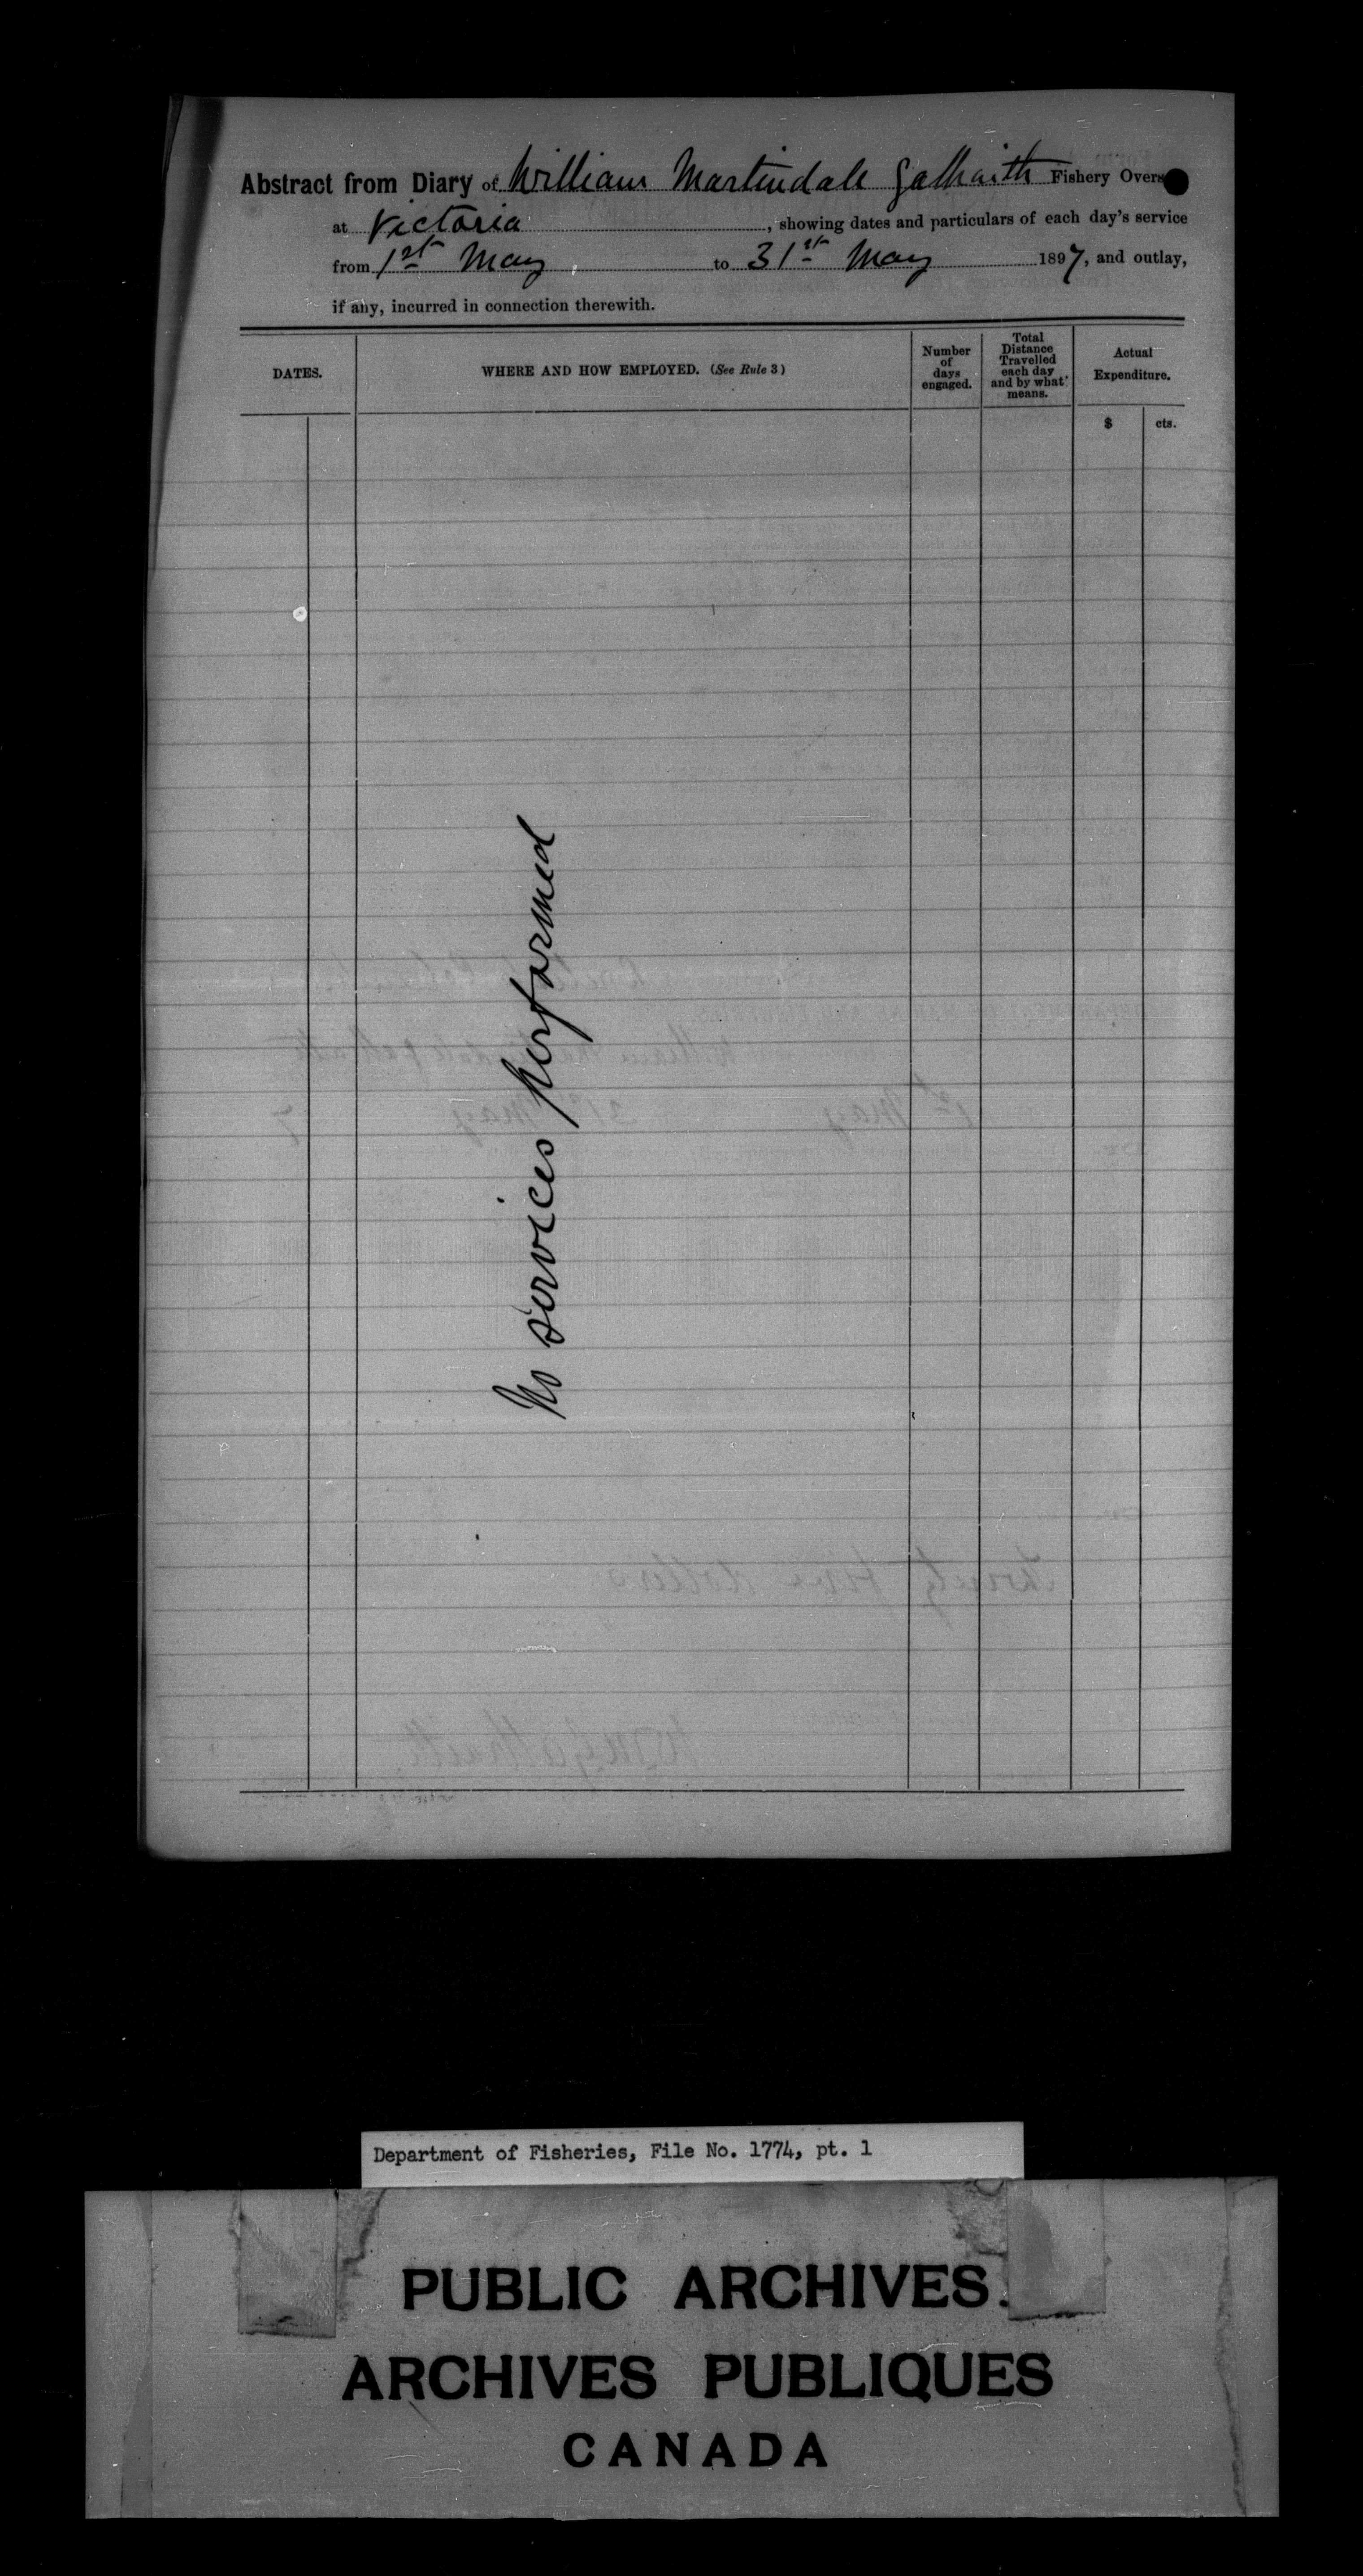 Abstract from Diary of William Martindale Galbraith Fishery Overs
at Victoria, showing dates and particulars of each day's service
from 1st May to 31st May 1897, and outlay,
if any, incurred in connection therewith.
DATES.
WHERE AND HOW EMPLOYED. (See Rule 3)
Number
of
days
engaged.
Total
Distance
Travelled
each day
and by what
means.
Actual
Expenditure.
$ cts.
No services performed
Department of Fisheries, File No. 1774, pt. 1
PUBLIC ARCHIVES
ARCHIVES PUBLIQUES
CANADA